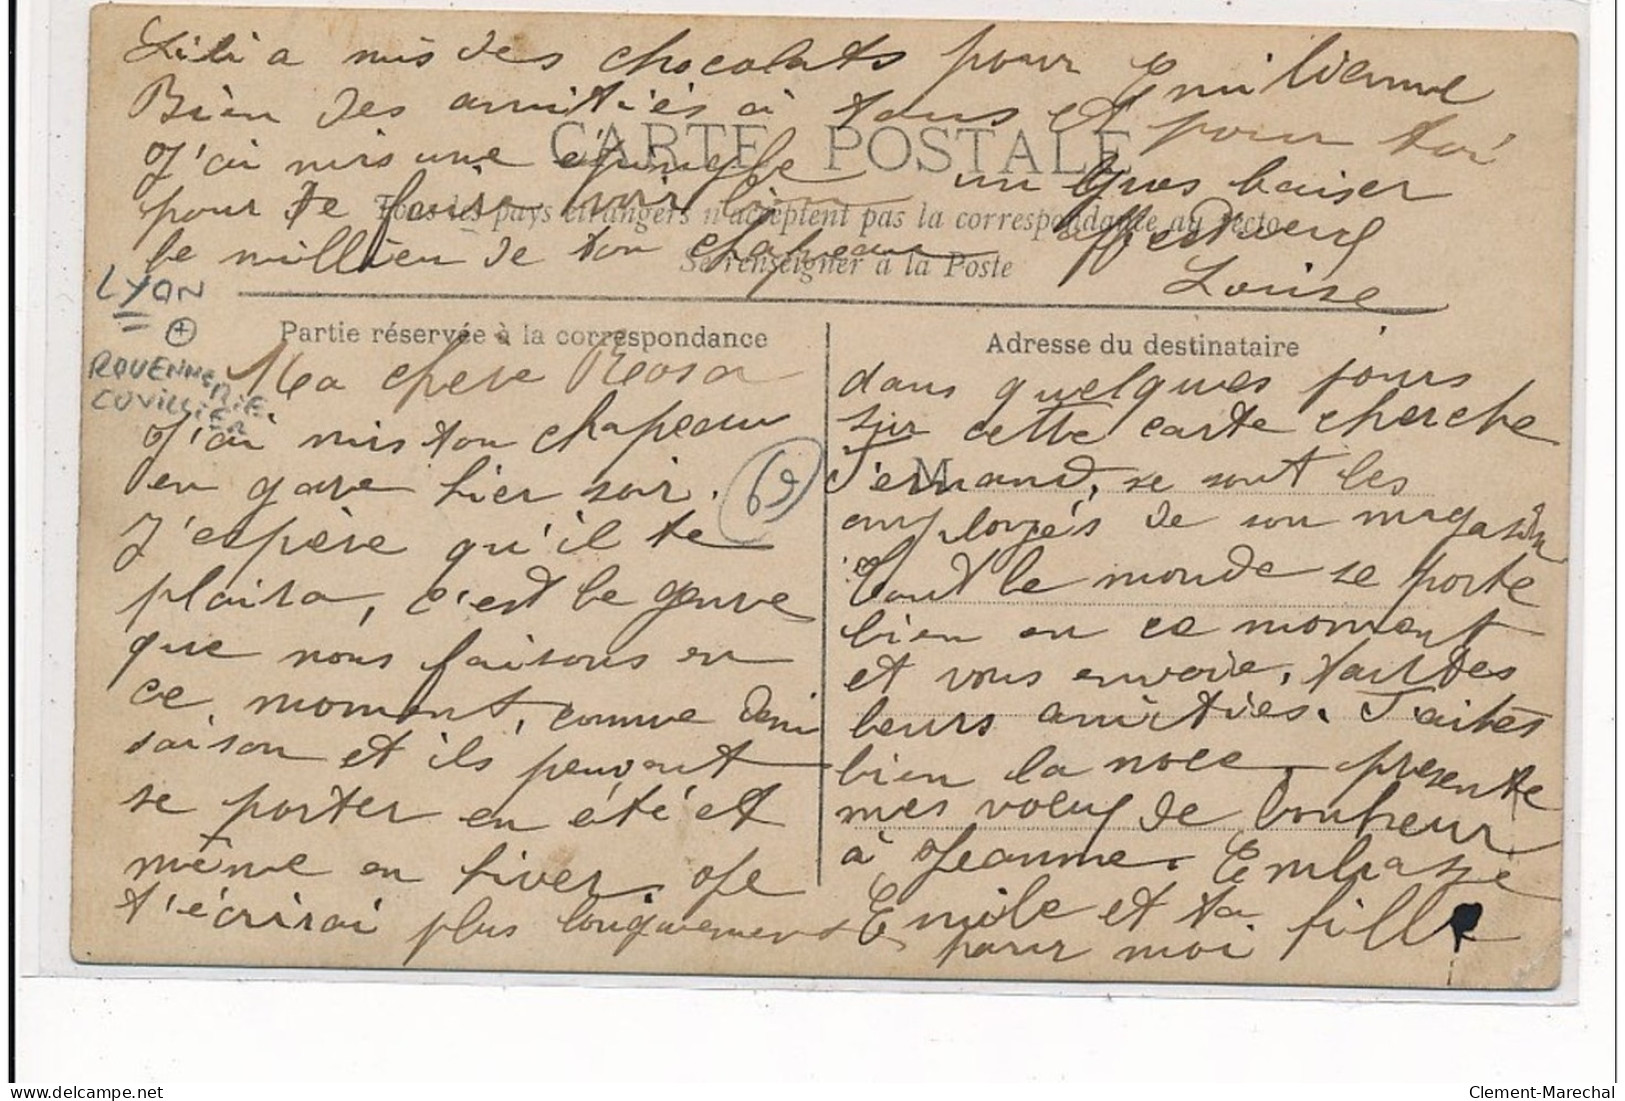 Lili a mis des chocolats pour Emilienne
Bien des amitiés à tous et pour toi
CARTE POSTALE
J'ai mis une épingle un gros baiser
pour te faire voir bien affectueux
Tous les pays étrangers n'acceptent pas la correspondance au recto
le millieu de ton chapeau
Se renseigner à la Poste
Louise
LYON
+
ROUENNERIE
CUVILLIER
Partie réservée à la correspondance
Ma chere Rosa
J'ai mis ton chapeau
en gare hier soir.
J'espère qu'il te
plaira, c'est le genre
que nous faisons en
ce moment, comme demi
saison et ils peuvent
se porter en été et
même en hiver. Je
t'écrirai plus longuement
69
Adresse du destinataire
dans quelques jours
sur cette carte cherche
M
Fernand, se sont les
employés de son magasin
Tout le monde se porte
bien en ce moment
et vous envoie, toutes
leurs amitiés. Faites
bien la noce, presente
mes voeux de bonheur
à Jeanne. Embrasse
Emile et ta fille
pour moi
Clement-Marechal